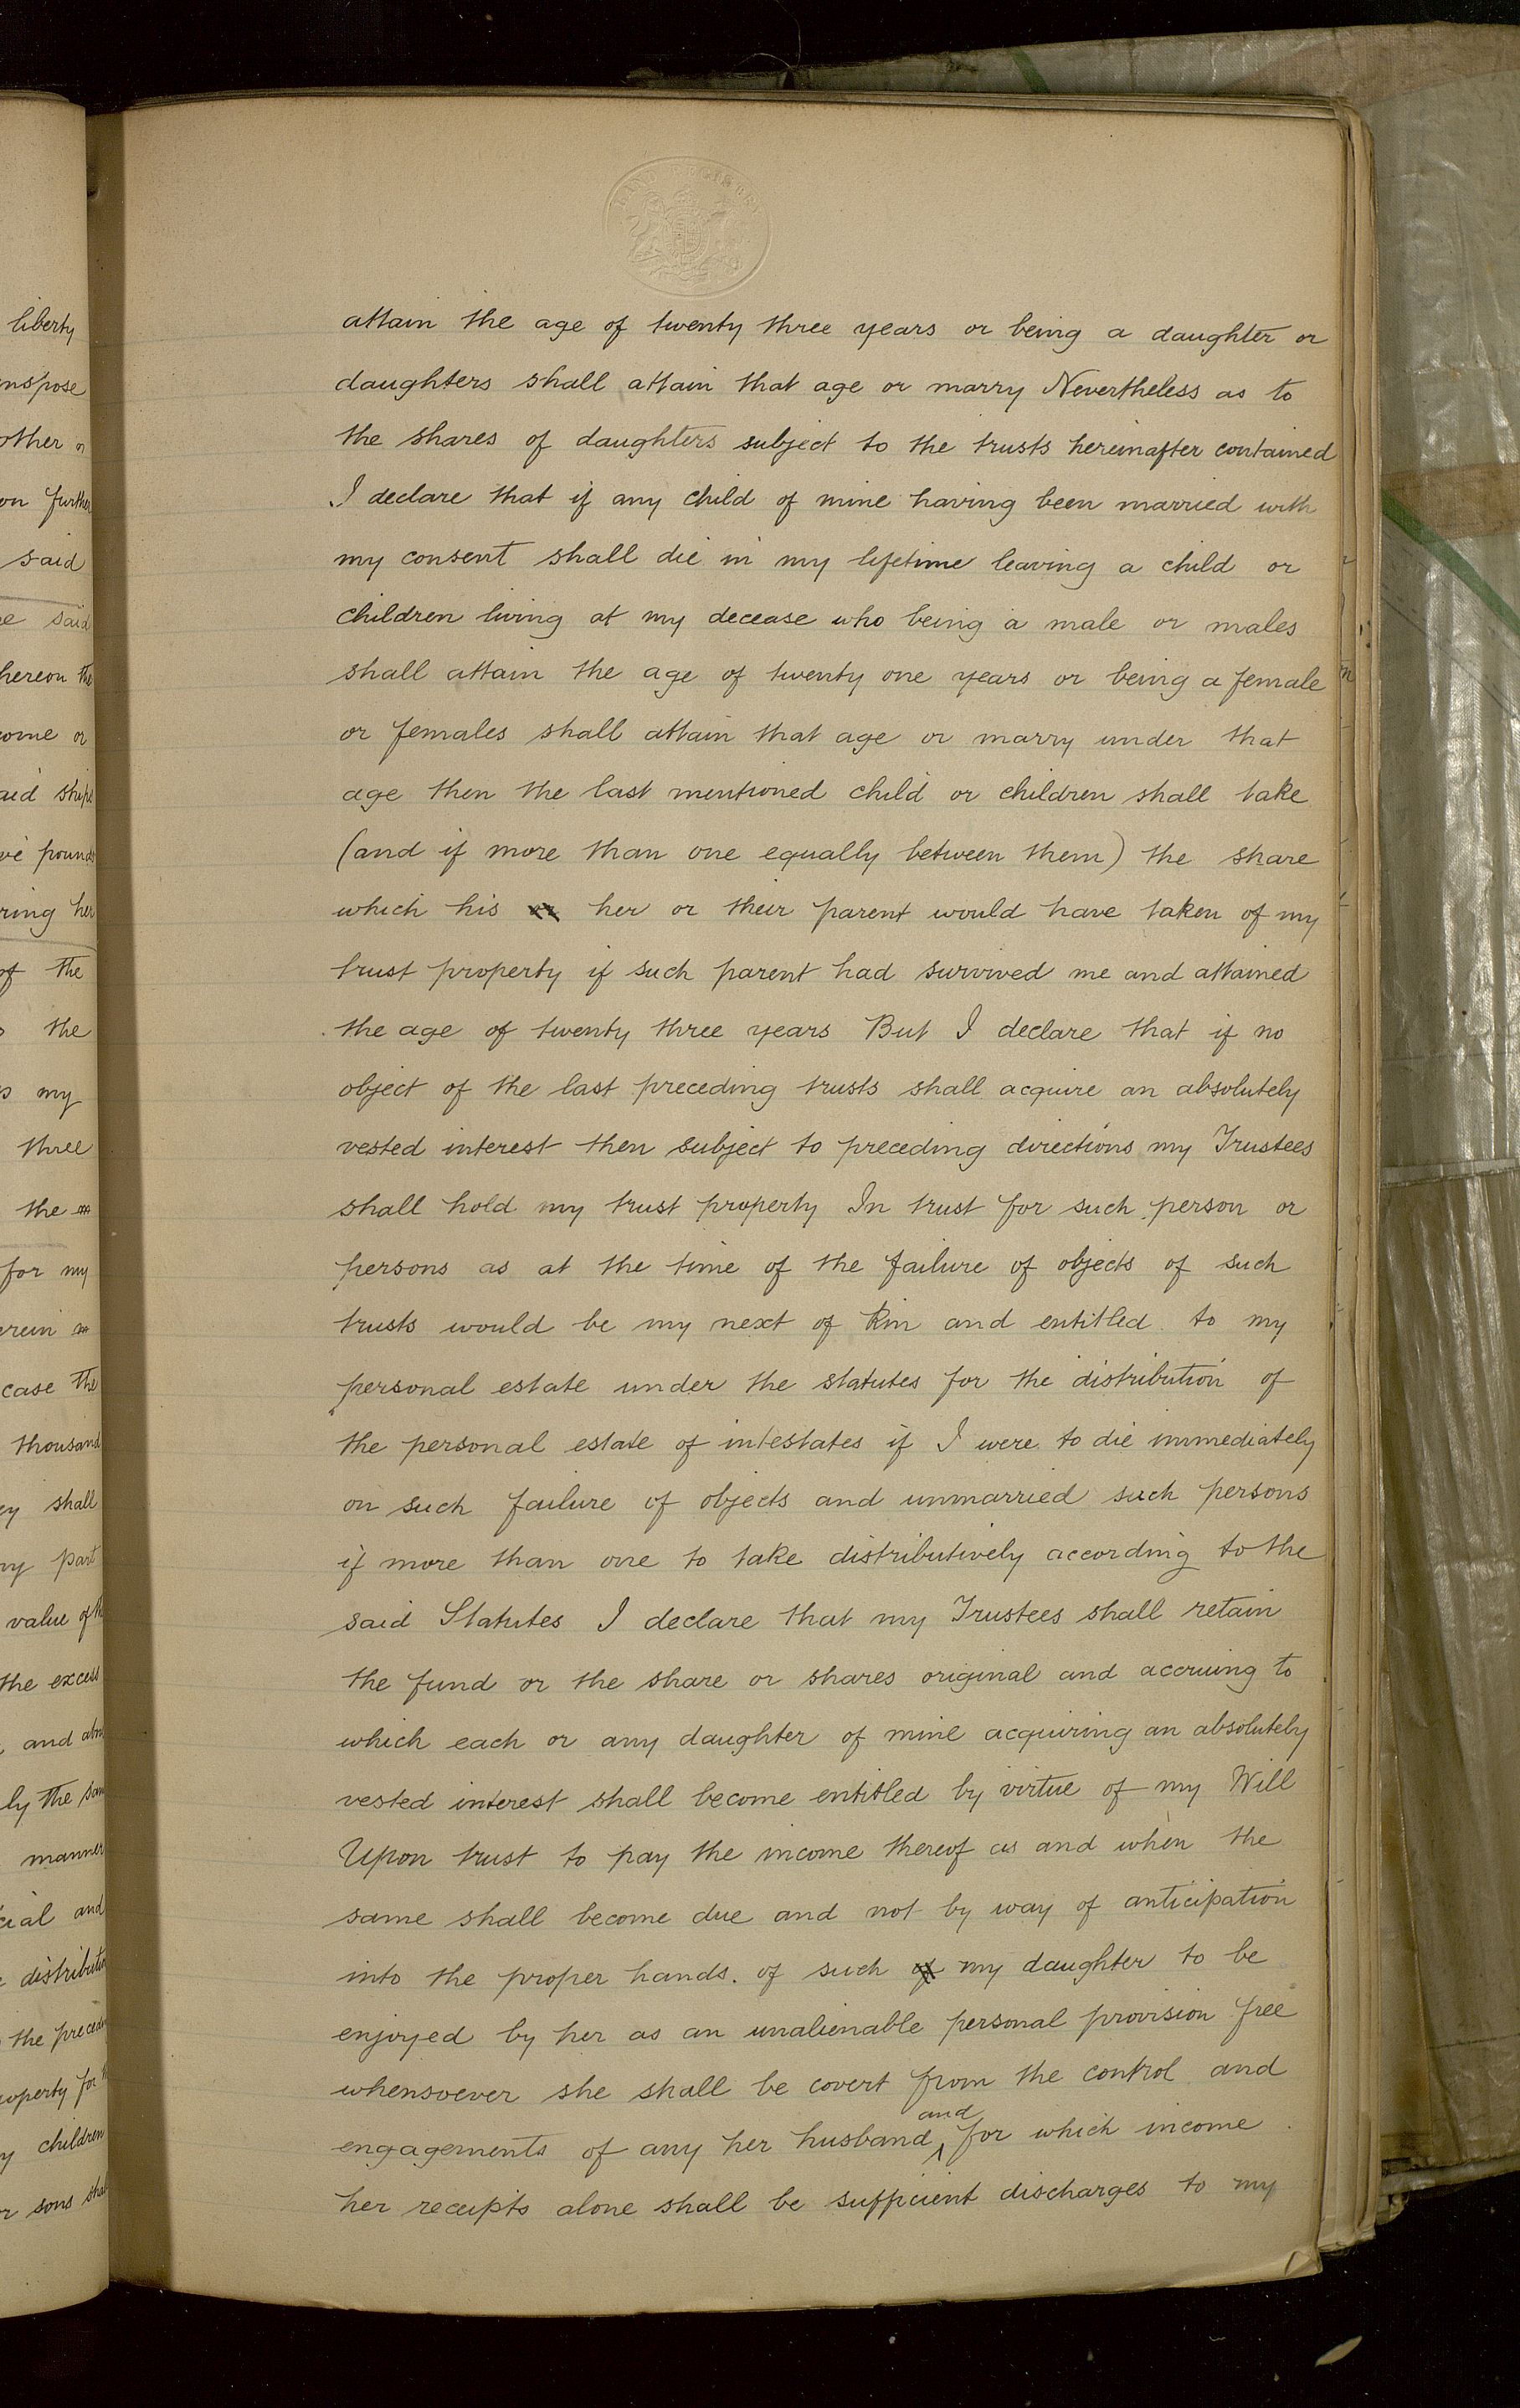 liberty
other
further
said
said
hereon the
or
said
pounds
her
of the
the
my
three
the
for my
case the
thousand
shall
part
value of
the excess
and
the
manner
and
the
property for
children
sons
LAND REGISTRY
attain the age of twenty three years or being a daughter or
daughters shall attain that age or marry Nevertheless as to
the shares of daughters subject to the trusts hereinafter contained
I declare that if any child of mine having been married with
my consent shall die in my lifetime leaving a child or
children living at my decease who being a male or males
shall attain the age of twenty one years or being a female
or females shall attain that age or marry under that
age then the last mentioned child or children shall take
(and if more than one equally between them) the share
which his or her or their parent would have taken of my
trust property if such parent had survived me and attained
the age of twenty three years But I declare that if no
object of the last preceding trusts shall acquire an absolutely
vested interest then subject to preceding directions my Trustees
shall hold my trust property In trust for such person or
persons as at the time of the failure of objects of such
trusts would be my next of kin and entitled to my
personal estate under the statutes for the distribution of
the personal estate of intestates if I were to die immediately
on such failure of objects and unmarried such persons
if more than one to take distributively according to the
said Statutes I declare that my Trustees shall retain
the fund or the share or shares original and accruing to
which each or any daughter of mine acquiring an absolutely
vested interest shall become entitled by virtue of my Will
Upon trust to pay the income thereof as and when the
same shall become due and not by way of anticipation
into the proper hands. of such of my daughter to be
enjoyed by her as an unalienable personal provision free
whensoever she shall be covert from the control and
engagements of any her husband and for which income
her receipts alone shall be sufficient discharges to my